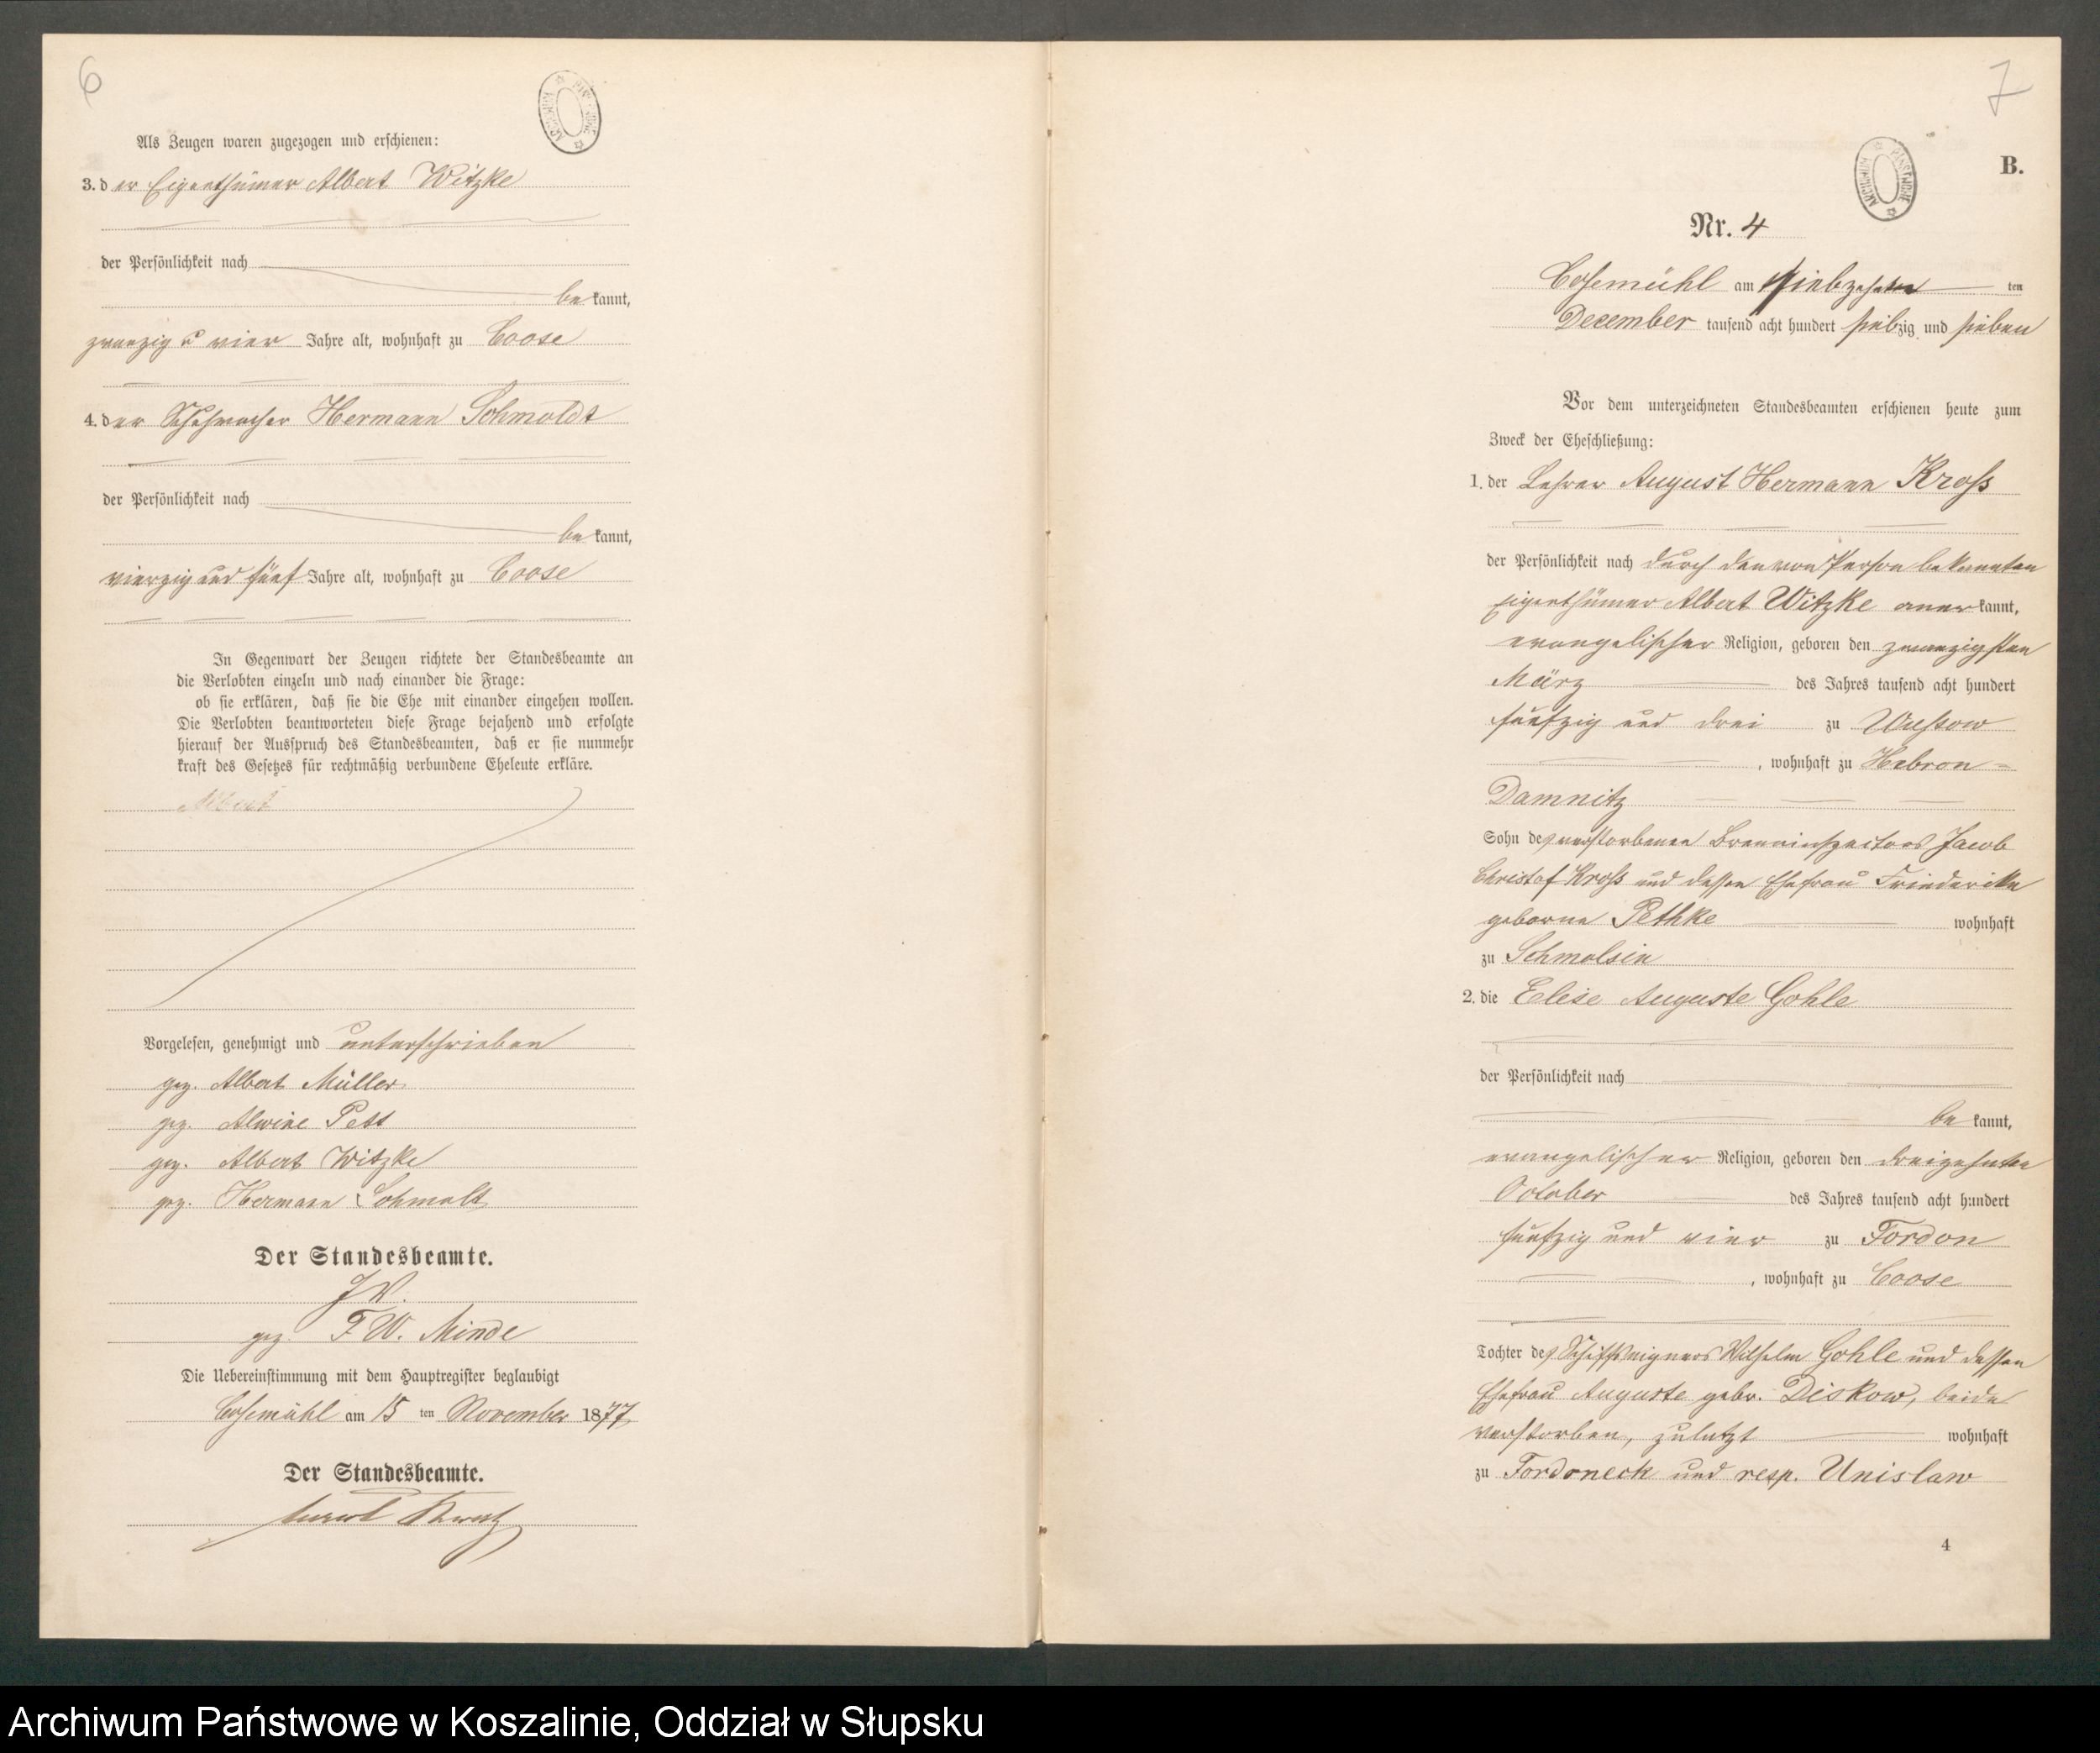 6
ARCHIWUM PAŃSTWOWE
Als Zeugen waren zugezogen und erschienen:
3. der Eigenthümer Albert Witzke
der Persönlichkeit nach
bekannt,
zwanzig u vier Jahre alt, wohnhaft zu Coose
4. der Schuhmacher Hermann Schmoldt
der Persönlichkeit nach
bekannt,
vierzig und fünf Jahre alt, wohnhaft zu Coose
In Gegenwart der Zeugen richtete der Standesbeamte an
die Verlobten einzeln und nach einander die Frage:
ob sie erklären, daß sie die Ehe mit einander eingehen wollen.
Die Verlobten beantworteten diese Frage bejahend und erfolgte
hierauf der Ausspruch des Standesbeamten, daß er sie nunmehr
kraft des Gesetzes für rechtmäßig verbundene Eheleute erkläre.
Albert
Vorgelesen, genehmigt und unterschrieben
gez. Albert Müller
gez. Alwine Pett
gez. Albert Witzke
gez. Hermann Schmolt
Der Standesbeamte.
J.V.
gez. F. W. Minde
Die Uebereinstimmung mit dem Hauptregister beglaubigt
Cosemühl am 15 ten November 1877
Der Standesbeamte.
7
ARCHIWUM PAŃSTWOWE
B.
Nr. 4
Cosemühl am siebzehnten ten
December tausend acht hundert siebzig und sieben
Vor dem unterzeichneten Standesbeamten erschienen heute zum
Zweck der Eheschließung:
1. der Lehrer August Hermann Kross
der Persönlichkeit nach durch den von Person bekannten
Eigenthümer Albert Witzke anerkannt,
evangelischer Religion, geboren den zwanzigsten
März des Jahres tausend acht hundert
fünfzig und drei zu Wussow
, wohnhaft zu Hebron-
Damnitz
Sohn des verstorbenen Brenninspectors Jacob
Christof Kross und dessen Ehefrau Friederike
geborne Pethke wohnhaft
zu Schmolsin
2. die Elise Auguste Gohle
der Persönlichkeit nach
bekannt,
evangelischer Religion, geboren den dreizehnten
October des Jahres tausend acht hundert
fünfzig und vier zu Fordon
, wohnhaft zu Coose
Tochter des Schiffseigners Wilhelm Gohle und dessen
Ehefrau Auguste gebr. Diskow, beide
verstorben, zuletzt wohnhaft
zu Fordoneck und resp. Unislaw
4
Archiwum Państwowe w Koszalinie, Oddział w Słupsku